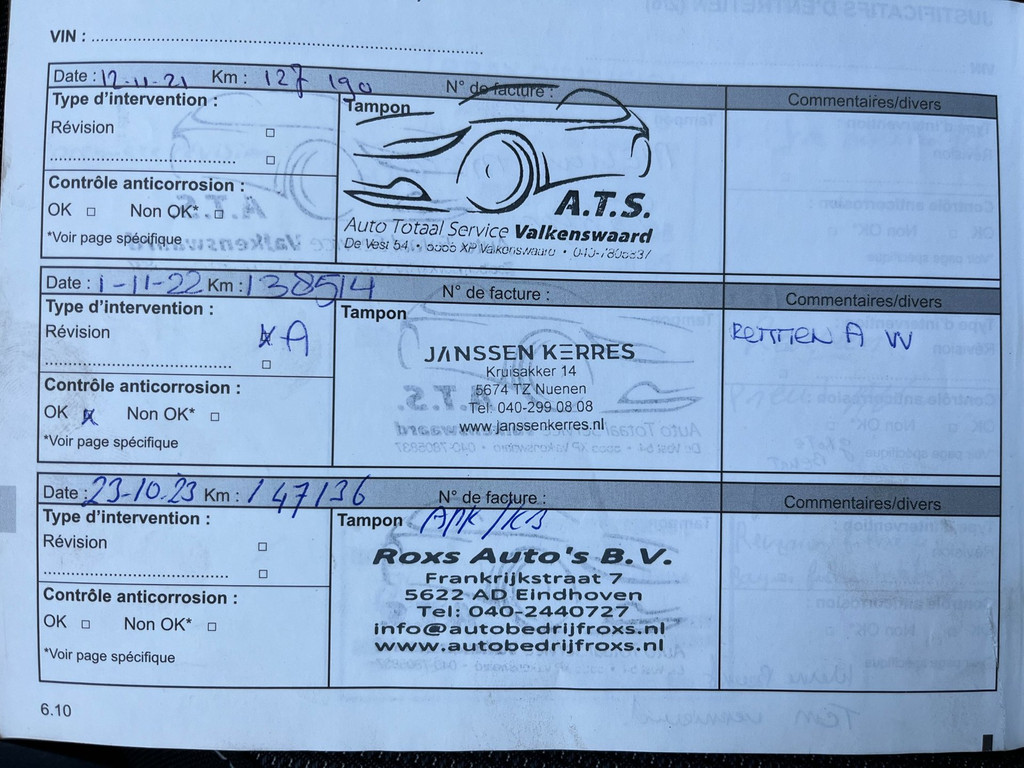 VIN :
Date : 12-11-21 Km : 127 190 N° de facture : Commentaires/divers
Type d'intervention : Tampon
Révision
Contrôle anticorrosion :
OK Non OK*
*Voir page spécifique
A.T.S.
Auto Totaal Service Valkenswaard
De Vest 54, • 5555 XP Valkenswaard •
Date : 1-11-22 Km : 138514 N° de facture : Commentaires/divers
Type d'intervention : Tampon
Révision A
Contrôle anticorrosion :
OK x Non OK*
*Voir page spécifique
JANSSEN KERRES
Kruisakker 14
5674 TZ Nuenen
Tel: 040-299 08 08
www.janssenkerres.nl
A W
Date : 23-10-23 Km : 147136 N° de facture : Commentaires/divers
Type d'intervention : Tampon APK/KB
Révision
Contrôle anticorrosion :
OK Non OK*
*Voir page spécifique
Roxs Auto's B.V.
Frankrijkstraat 7
5622 AD Eindhoven
Tel: 040-2440727
info@autobedrijfroxs.nl
www.autobedrijfroxs.nl
6.10